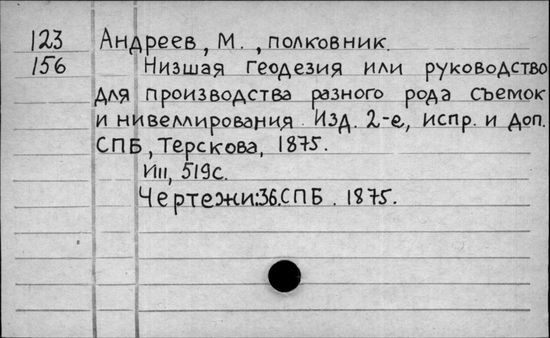 123 Андреев, М., полковник.
156 Низшая геодезия или руководство
для производства разного рода съемок
и нивеллирования. Изд. 2-е, испр. и доп.
СПБ, Терскова, 1875.
VIII, 519с.
Чертежи: 36. СПБ. 1875.